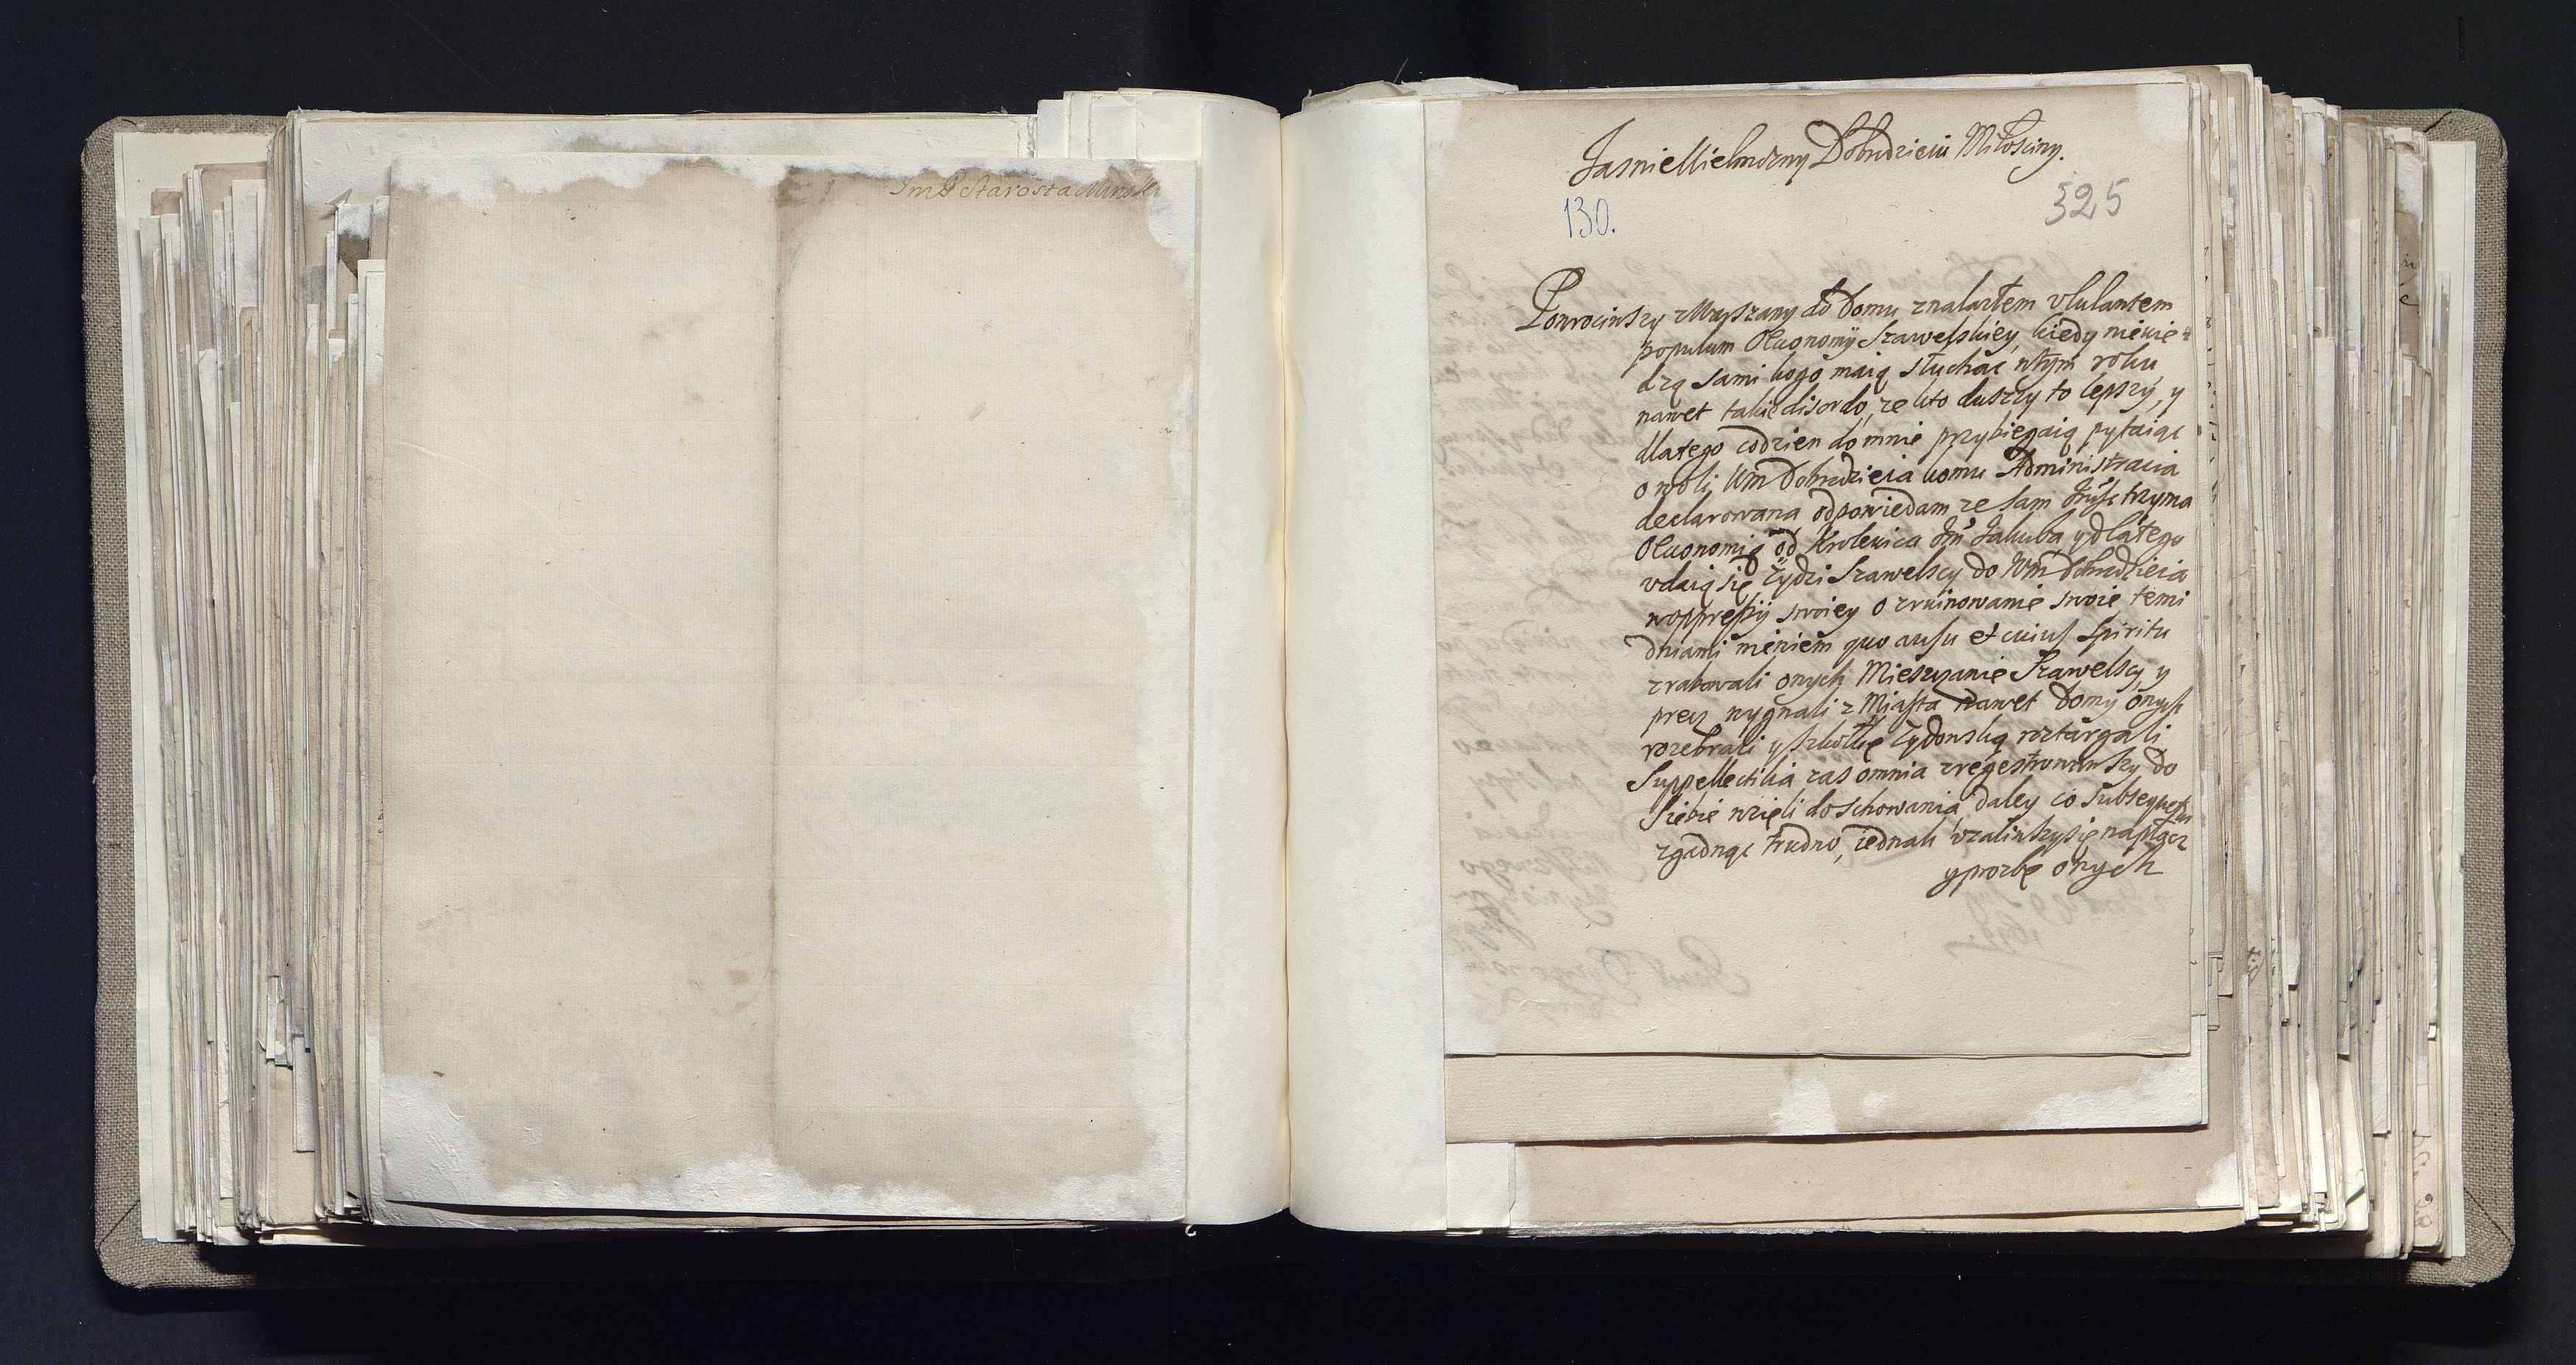 ImP Starosta Minski
Jasnie Wielmozny Dobrodzieiu Miłosciwy.
130.
325
Powrociwszy z Warszawy do Domu znalazłem vlulantem
populum Oeconomij Szawelskiey, kiedy niewie=
dzą sami kogo maią słuchac wtym roku
nawet takie disordo, ze kto duszzy to lepszy, y
dlatego codzien do mnie przybiegaią pytaiąc
o woli Wm Dobrodzieia komu Administracia
declarowana odpowiedam ze sam trzyma
Oeconomię od Krolewica Jm Jakuba y dlatego
vdaią się Zydzi Szawelscy do Wm Dobrodzieia
woppressij swoiey o zruinowanie swoie temi
dniami niewiem quo ausu et cuius spiritu
zrabowali onych Mieszczanie Szawelscy, y
precz wygnali z Miasta nawet Domy onych
rozebrali y szkołkę Zydowską roztargali
Suppellectilia zas omnia zregestrowawszy do
siebie wzięli do schowania, daley co subsequetur
zgadnąc trudno, iednak vzaliwszy się na płacz
y prozbę onych